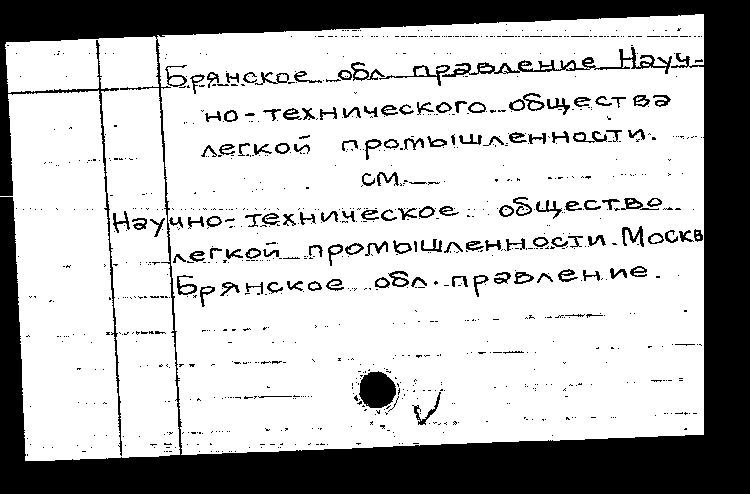 Брянское обл. правление Науч-
но-технического общества
легкой промышленности.
см.
Научно-техническое общество
легкой промышленности. Москв
Брянское обл. правление.